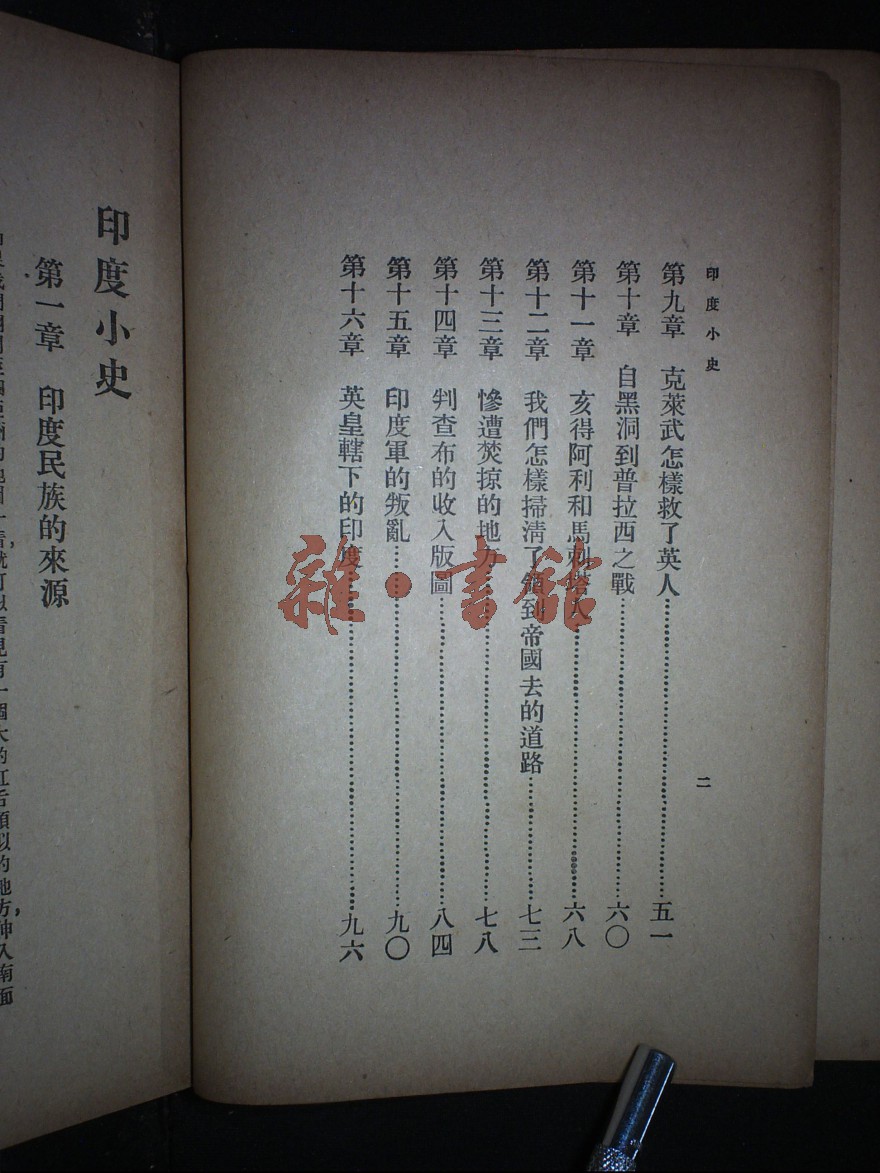 印度小史
二
第九章 克萊武怎樣救了英人……五一
第十章 自黑洞到普拉西之戰……六〇
第十一章 亥得阿利和馬剌塔人……六八
第十二章 我們怎樣掃清了領到帝國去的道路……七三
第十三章 慘遭焚掠的地方……七八
第十四章 判查布的收入版圖……八四
第十五章 印度軍的叛亂……九〇
第十六章 英皇轄下的印度……九六
雜·書館
印度小史
第一章 印度民族的來源
一看,就可以看見有一個大的紅舌頭似的地方,伸入南面